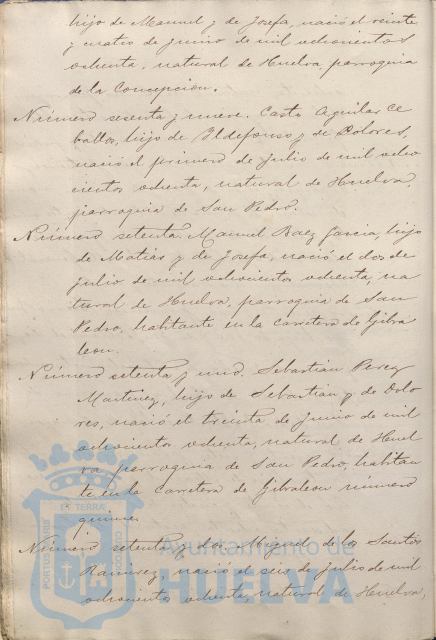 hijo de Manuel y de Josefa, nació el veinte
y cuatro de junio de mil ochocientos
ochenta, natural de Huelva parroquia
de la Concepcion.
Número sesenta y nueve. Casto Aguilar Ce
ballos, hijo de Yldefonso y de Dolores,
nació el primero de julio de mil ocho
cientos ochenta, natural de Huelva,
parroquia de San Pedro.
Número setenta. Manuel Baez Garcia, hijo
de Matias y de Josefa, nació el dos de
julio de mil ochocientos ochenta, na
tural de Huelva, parroquia de San
Pedro, habitante en la carretera de Gibra
leon.
Número setenta y uno. Sebastian Perez
Martinez, hijo de Sebastian y de Dolo
res, nació el treinta de junio de mil
ochocientos ochenta, natural de Huel
va parroquia de San Pedro, habitan
te en la carretera de Gibraleon número
quince.
Número setenta y dos. Miguel de los Santos
Ramirez, nació el seis de julio de mil
ochocientos ochenta, natural de Huelva,
Ayuntamiento de
HUELVA
PORTUS MARIS
ET TERRAE
CUSTODIA